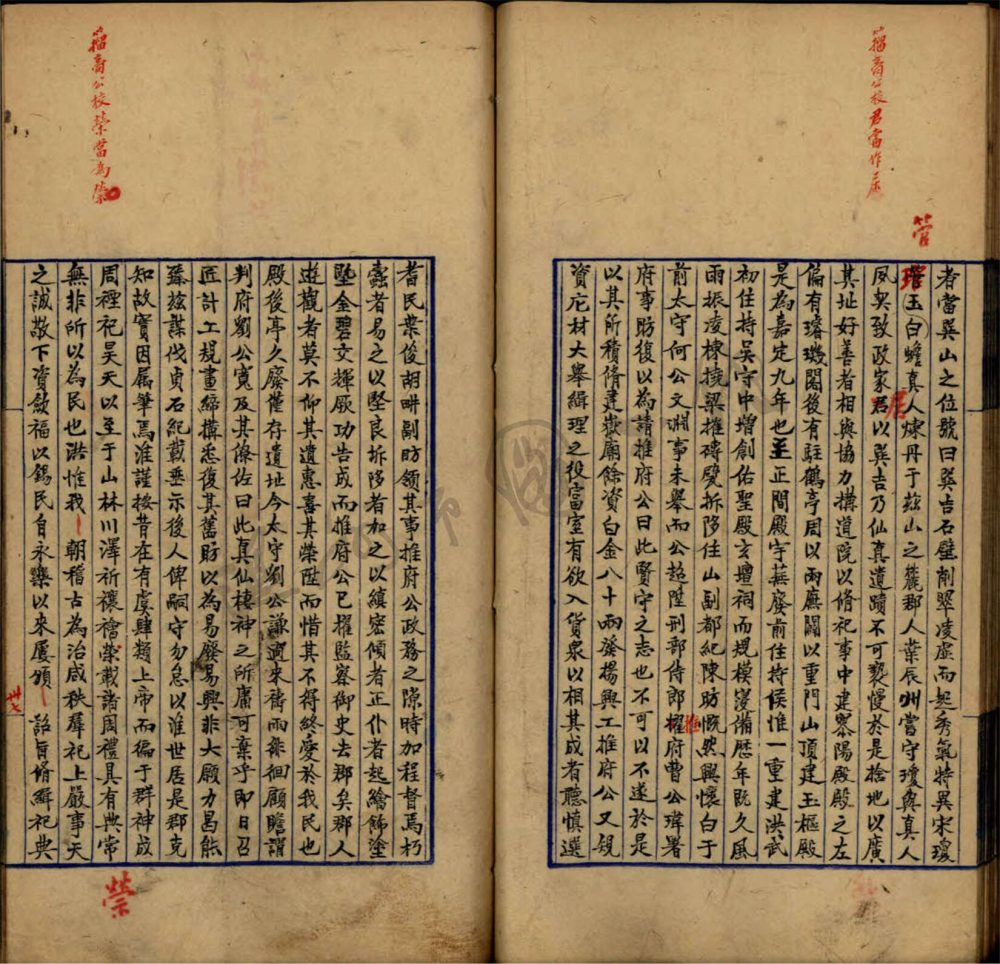 籀高公校君當作居
管
者當巽山之位號曰巽吉石壁削翠凌虛而起秀氣特異宋瓊
琯玉白蟾真人煉丹于玆山之麓郡人葉辰州嘗守瓊與真人
夙契致政家君以巽吉乃仙真遺蹟不可褻慢於是捨地以廣
居
其址好善者相與協力搆道院以脩祀事中建寥陽殿殿之左
偏有璿璣閣後有駐鶴亭周以兩廡闢以重門山頂建玉樞殿
是為嘉定九年也至正間殿宇蕪廢前住持侯惟一重建洪武
初住持吳守中增創佑聖殿玄壇祠而規模寖備歷年既久風
雨振凌棟撓梁摧磚甓拆陊住山副都紀陳昉慨然興懷白于
前太守何公文淵事未舉而公超陞刑部侍郎櫂府曹公瑋署
推
府事昉復以為請推府公曰此賢守之志也不可以不遂於是
以其所積脩建嶽廟餘資白金八十兩發揚興工推府公又規
資庀材大舉緝理之役富室有欲入貨泉以相其成者聽慎選
籀高公校榮當為禜
耆民葉俊胡畊副昉領其事推府公政務之隙時加程督焉朽
蠹者易之以堅良拆陊者加之以縝密傾者正仆者起繪飾塗
墍金碧交輝厥功告成而推府公已擢監察御史去郡矣郡人
遊觀者莫不仰其遺惠喜其榮陞而惜其不得終愛於我民也
殿後亭久廢僅存遺址今太守劉公謙適來禱雨徘徊顧瞻謂
判府劉公寬及其僚佐曰此真仙棲神之所庸可棄乎即日召
匠計工規畫締搆悉復其舊昉以為易廢易興非大願力曷能
臻玆謀伐貞石紀載垂示後人俾嗣守勿怠以淮世居是郡克
知故實因属筆焉淮謹按昔在有虞肆類上帝而徧于群神成
周禋祀昊天以至于山林川澤祈禳禬榮載諸周禮具有典常
無非所以為民也洪惟我 朝稽古為治咸秩羣祀上嚴事天
之誠敬下資斂福以錫民自永樂以來屢頒 詔旨脩緝祀典
卅七
禜